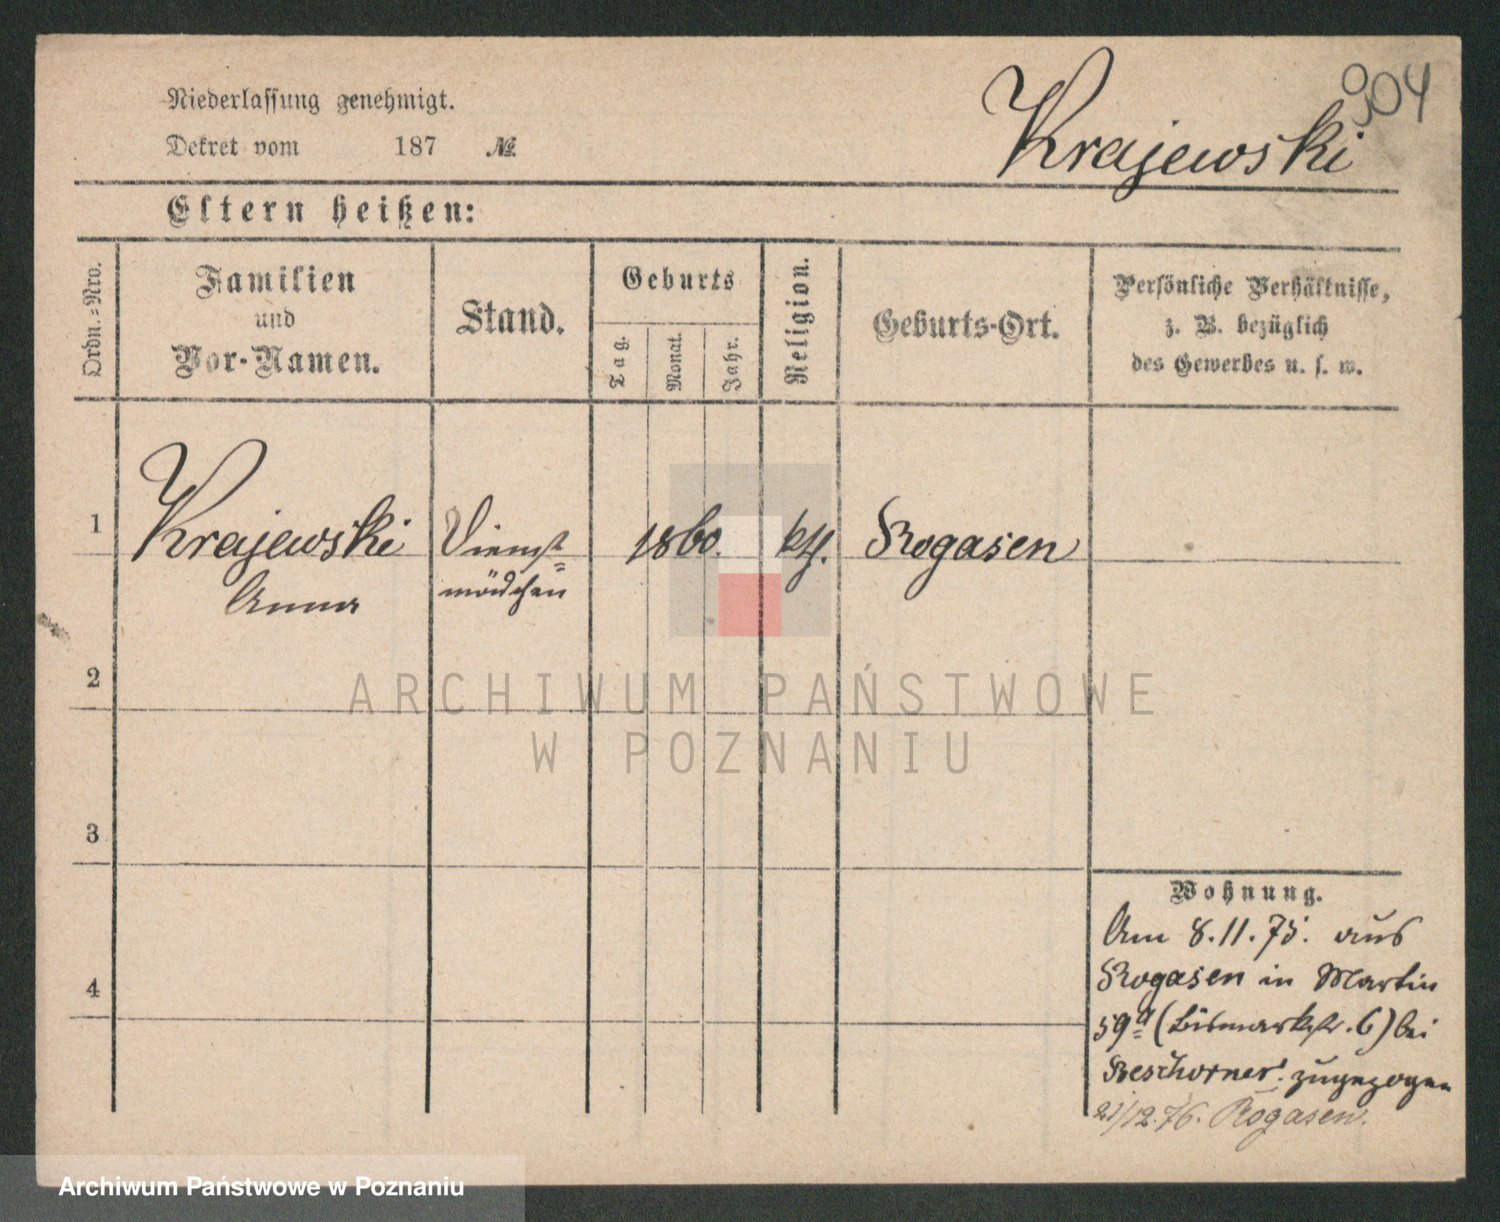 304
Niederlassung genehmigt.
Dekret vom 187 №
Krajewski
Eltern heißen:
Ordn.-Nro.
Familien
und
Vor-Namen.
Stand.
Geburts
Tag.
Monat.
Jahr.
Religion.
Geburts-Ort.
Persönliche Verhältnisse,
z. B. bezüglich
des Gewerbes u. s. w.
1
Krajewski
Anna
Dienst=
mädchen
1860.
kth.
Rogasen
2
3
4
Wohnung.
Am 8.11.75. aus
Rogasen in Martin
59a (Bismarkstr. 6) bei
Beschorner zugezogen
21/12.76. Rogasen.
ARCHIWUM PAŃSTWOWE
W POZNANIU
Archiwum Państwowe w Poznaniu